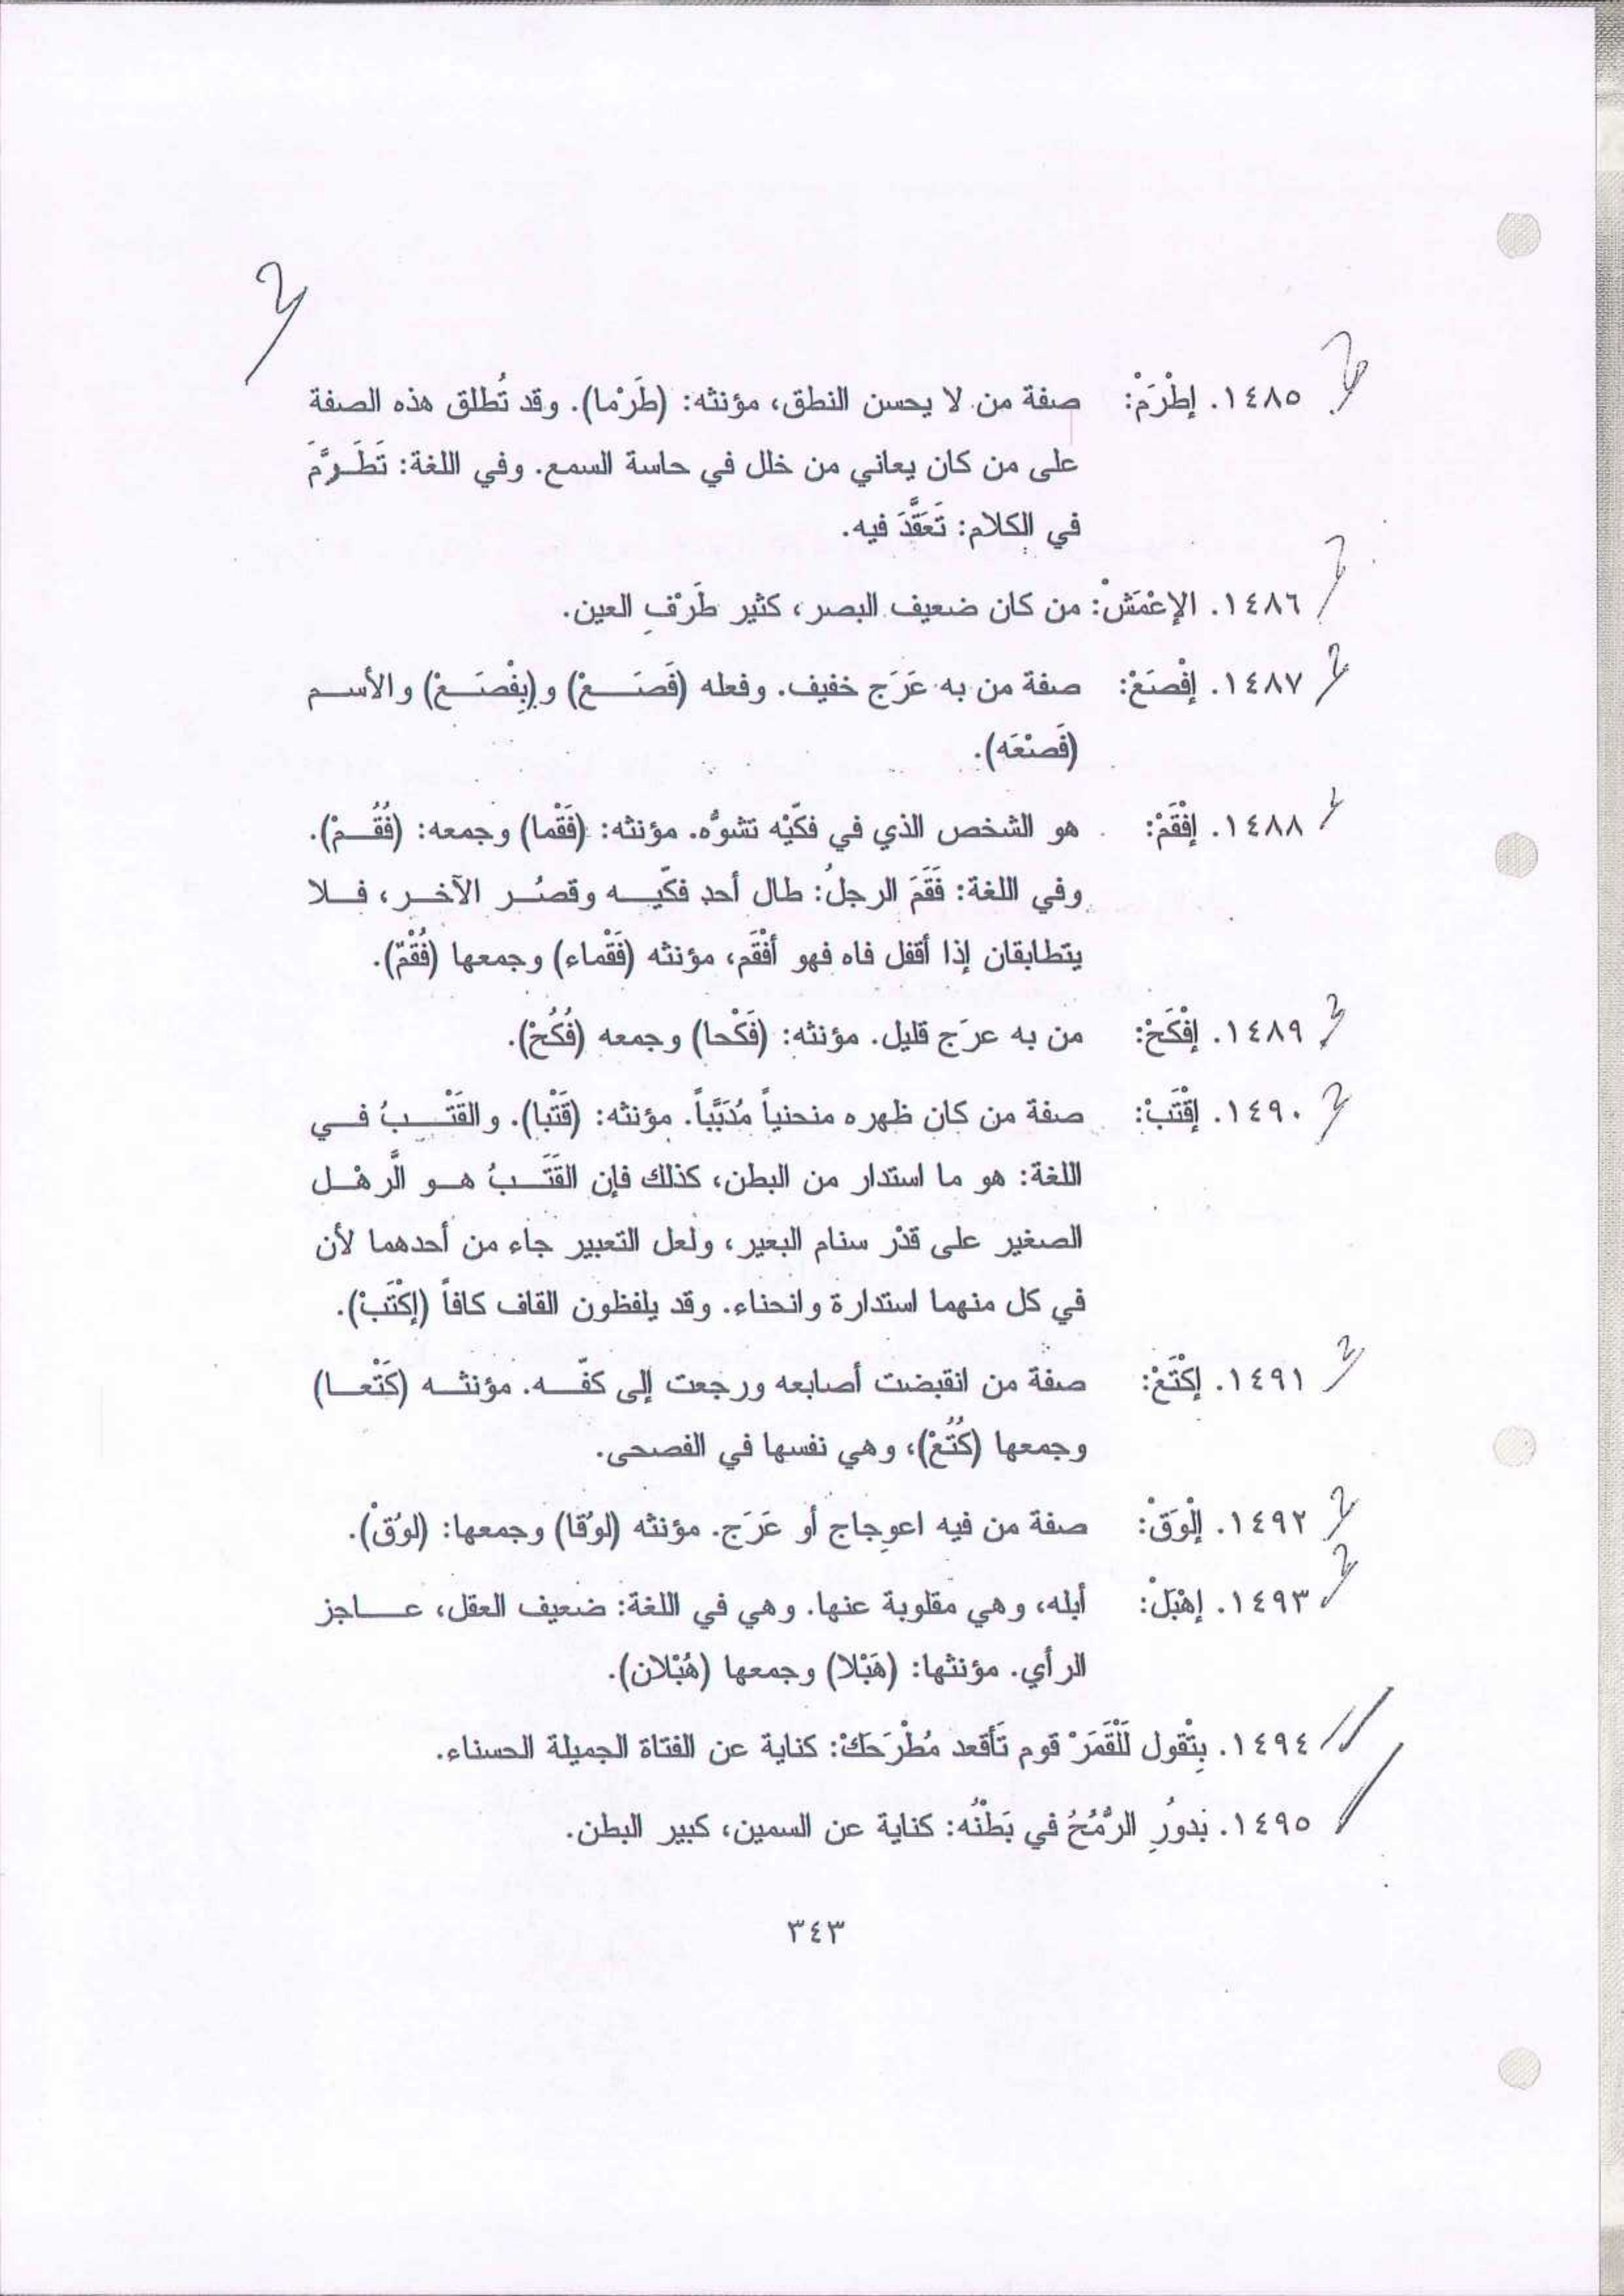 ١٤٨٥. إطْرَمْ: صفة من لا يحسن النطق، مؤنثه: (طَرْما). وقد تُطلق هذه الصفة
على من كان يعاني من خلل في حاسة السمع. وفي اللغة: تَطَرَّمَ
في الكلام: تَعَقَّدَ فيه.
١٤٨٦. الإعْمَشْ: من كان ضعيف البصر، كثير طَرْفِ العين.
١٤٨٧. إفْصَعْ: صفة من به عَرَج خفيف. وفعله (فَصَعْ) و(بِفْصَعْ) والأسم
(فَصْعَه).
١٤٨٨. إفْقَمْ: هو الشخص الذي في فكّيْه تشوُّه. مؤنثه: (فَقْما) وجمعه: (فُقُمْ).
وفي اللغة: فَقَمَ الرجلُ: طال أحد فكّيه وقصُر الآخر، فلا
يتطابقان إذا أقفل فاه فهو أفْقَم، مؤنثه (فَقْماء) وجمعها (فُقْمّ).
١٤٨٩. إفْكَحْ: من به عرَج قليل. مؤنثه: (فَكْحا) وجمعه (فُكُحْ).
١٤٩٠. إقْتَبْ: صفة من كان ظهره منحنياً مُدَبَّباً. مؤنثه: (قَتْبا). والقَتْبُ في
اللغة: هو ما استدار من البطن، كذلك فإن القَتَبُ هو الَّرهْل
الصغير على قدْر سنام البعير، ولعل التعبير جاء من أحدهما لأن
في كل منهما استدارة وانحناء. وقد يلفظون القاف كافاً (إكْتَبْ).
١٤٩١. إكْتَعْ: صفة من انقبضت أصابعه ورجعت إلى كفّه. مؤنثه (كَتْعا)
وجمعها (كُتُعْ)، وهي نفسها في الفصحى.
١٤٩٢. إلْوَقْ: صفة من فيه اعوجاج أو عَرَج. مؤنثه (لوْقا) وجمعها: (لوُقْ).
١٤٩٣. إهْبَلْ: أبله، وهي مقلوبة عنها. وهي في اللغة: ضعيف العقل، عاجز
الرأي. مؤنثها: (هَبْلا) وجمعها (هُبْلان).
١٤٩٤. بِتْقول لَلْقَمَرْ قوم تَأقعد مُطْرَحَكْ: كناية عن الفتاة الجميلة الحسناء.
١٤٩٥. بَدورُ الرُّمُحُ في بَطْنُه: كناية عن السمين، كبير البطن.
٣٤٣